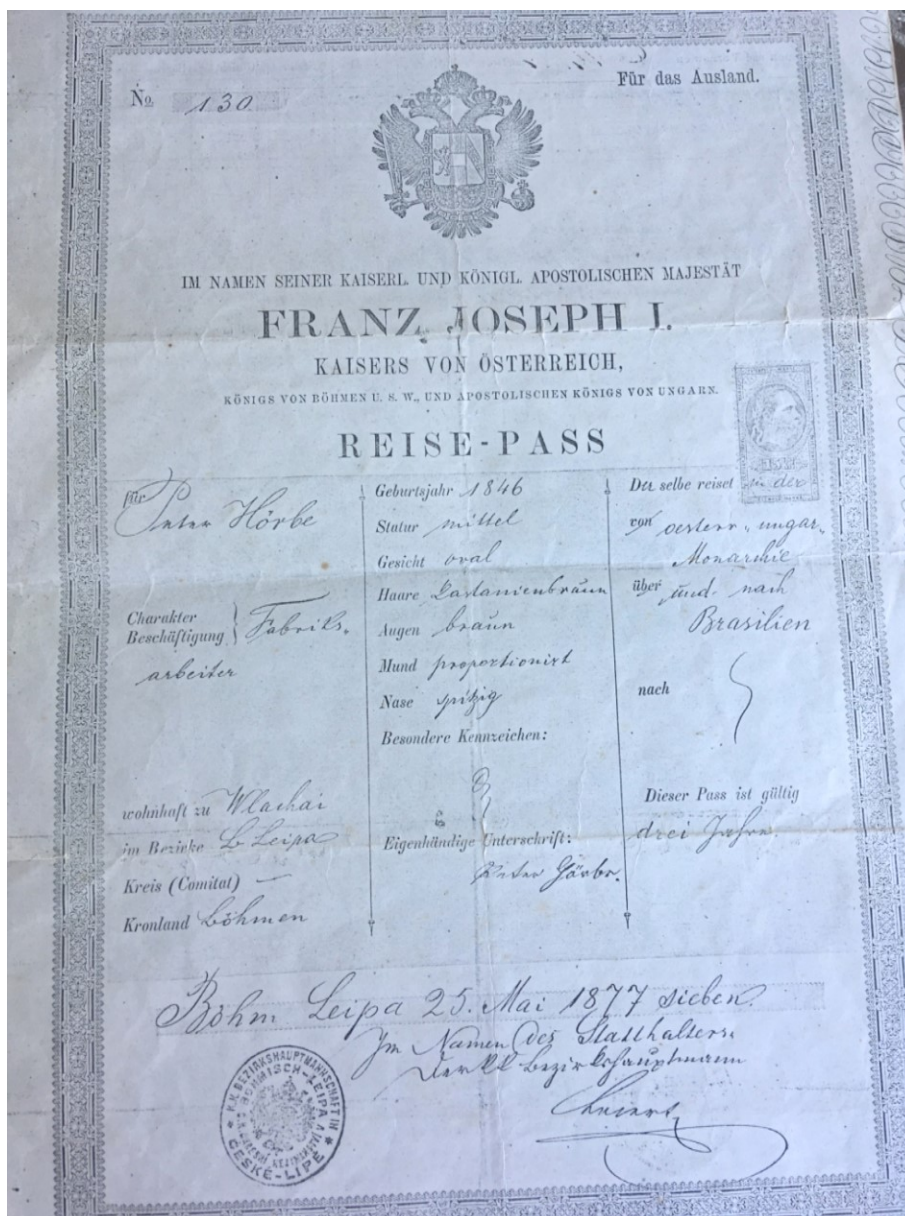 Für das Ausland.
No. 130
IM NAMEN SEINER KAISERL. UND KÖNIGL. APOSTOLISCHEN MAJESTÄT
FRANZ JOSEPH I.
KAISERS VON ÖSTERREICH,
KÖNIGS VON BÖHMEN U. S. W., UND APOSTOLISCHEN KÖNIGS VON UNGARN.
REISE-PASS
für
Hörbe
Charakter
Beschäftigung } Fabriks-
arbeiter
wohnhaft zu Wlachai
im Bezirke B Leipa
Kreis (Comitat) —
Kronland Böhmen
Geburtsjahr 1846
Statur mittel
Gesicht oval
Haare Kastanienbraun
Augen braun
Mund proportionirt
Nase spitzig
Besondere Kennzeichen:
Eigenhändige Unterschrift:
Der selbe reiset in der
von oesterr. ungar.
Monarchie
über und nach
Brasilien
nach
Dieser Pass ist gültig
drei Jahre
Böhm Leipa 25. Mai 1877 sieben
Im Namen des Statthalters
Der kk Bezirkshauptmann
K.K. BEZIRKSHAUPTMANNSCHAFT IN
BÖHMISCH-LEIPA
ČESKÉ-LIPĚ